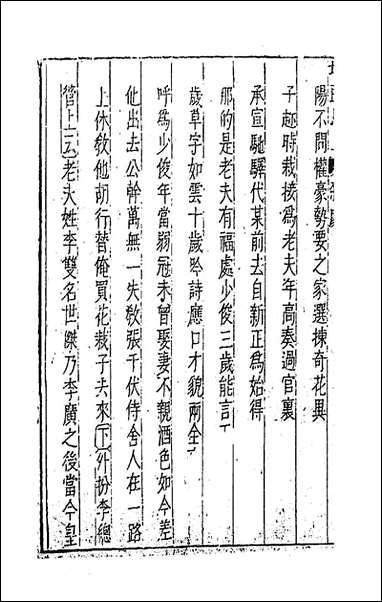 陽不問權豪勢要之家選揀奇花異
子趂時栽接爲老夫年高奏過官裏
承宣馳驛代某前去自新正爲始得
那的是老夫有福處少俊三歲能言了
歲草字如雲十歲吟詩應口才貌兩全了
呼爲少俊年當弱冠未曾娶妻不親酒色如今差
他出去公幹萬無一失敎張千伏侍舍人在一路
上休敎他胡行替俺買花栽子去來下外扮李總
管上云老夫姓李雙名世傑乃李廣之後當今皇